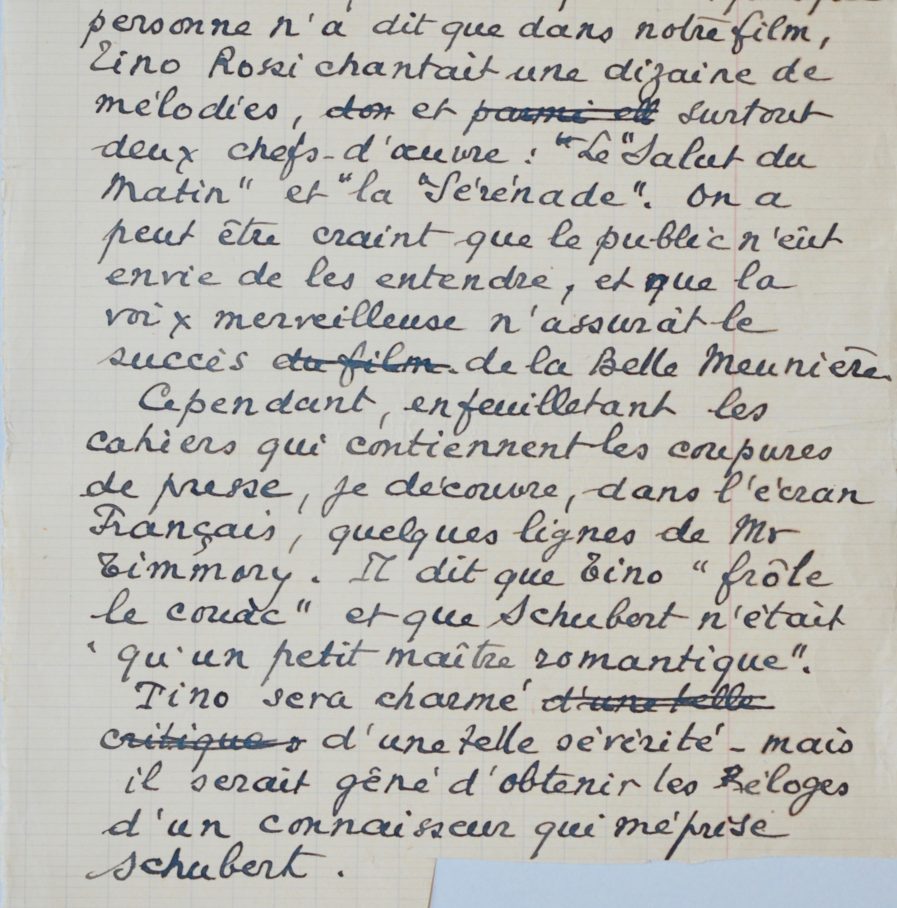 personne n'a dit que dans notre film,
Tino Rossi chantait une dizaine de
mélodies, don et parmi ell surtout
deux chefs-d'œuvre : "Le "Salut du
Matin" et "la "Sérénade". On a
peut être craint que le public n'eût
envie de les entendre, et que la
voix merveilleuse n'assurât le
succès du film de la Belle Meunière.
Cependant, en feuilletant les
cahiers qui contiennent les coupures
de presse, je découvre, dans l'écran
Français, quelques lignes de Mr
Timmory. Il dit que Tino "frôle
le couac" et que Schubert n'était
"qu'un petit maître romantique".
Tino sera charmé d'une telle
critique d'une telle sévérité - mais
il serait gêné d'obtenir les éloges
d'un connaisseur qui méprise
Schubert.